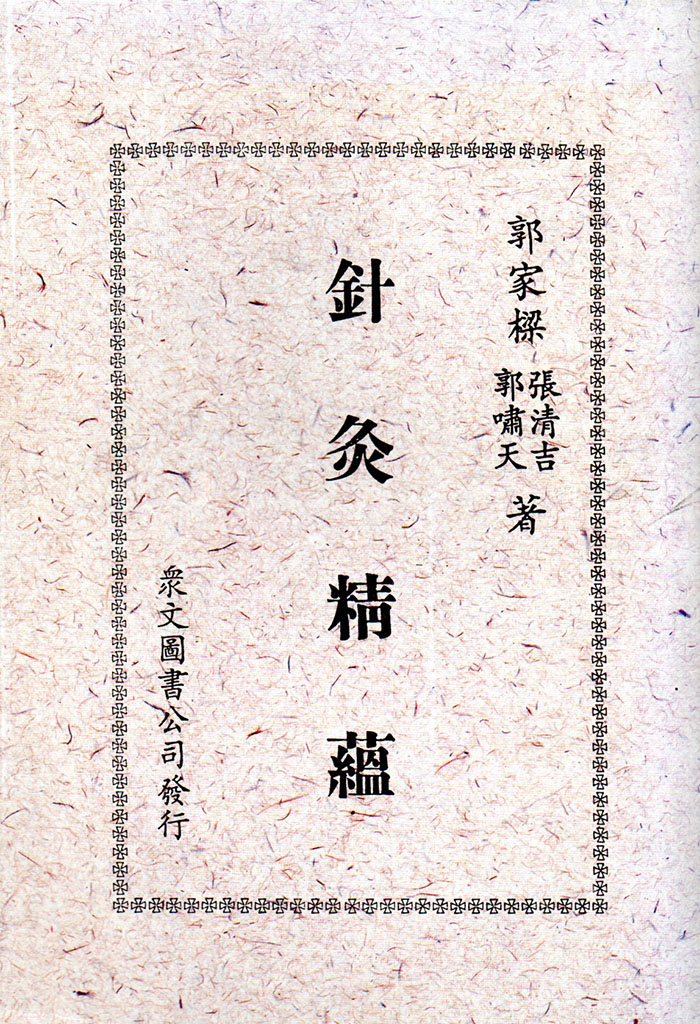 郭家樑
張清吉
郭嘯天
著
針灸精蘊
衆文圖書公司發行